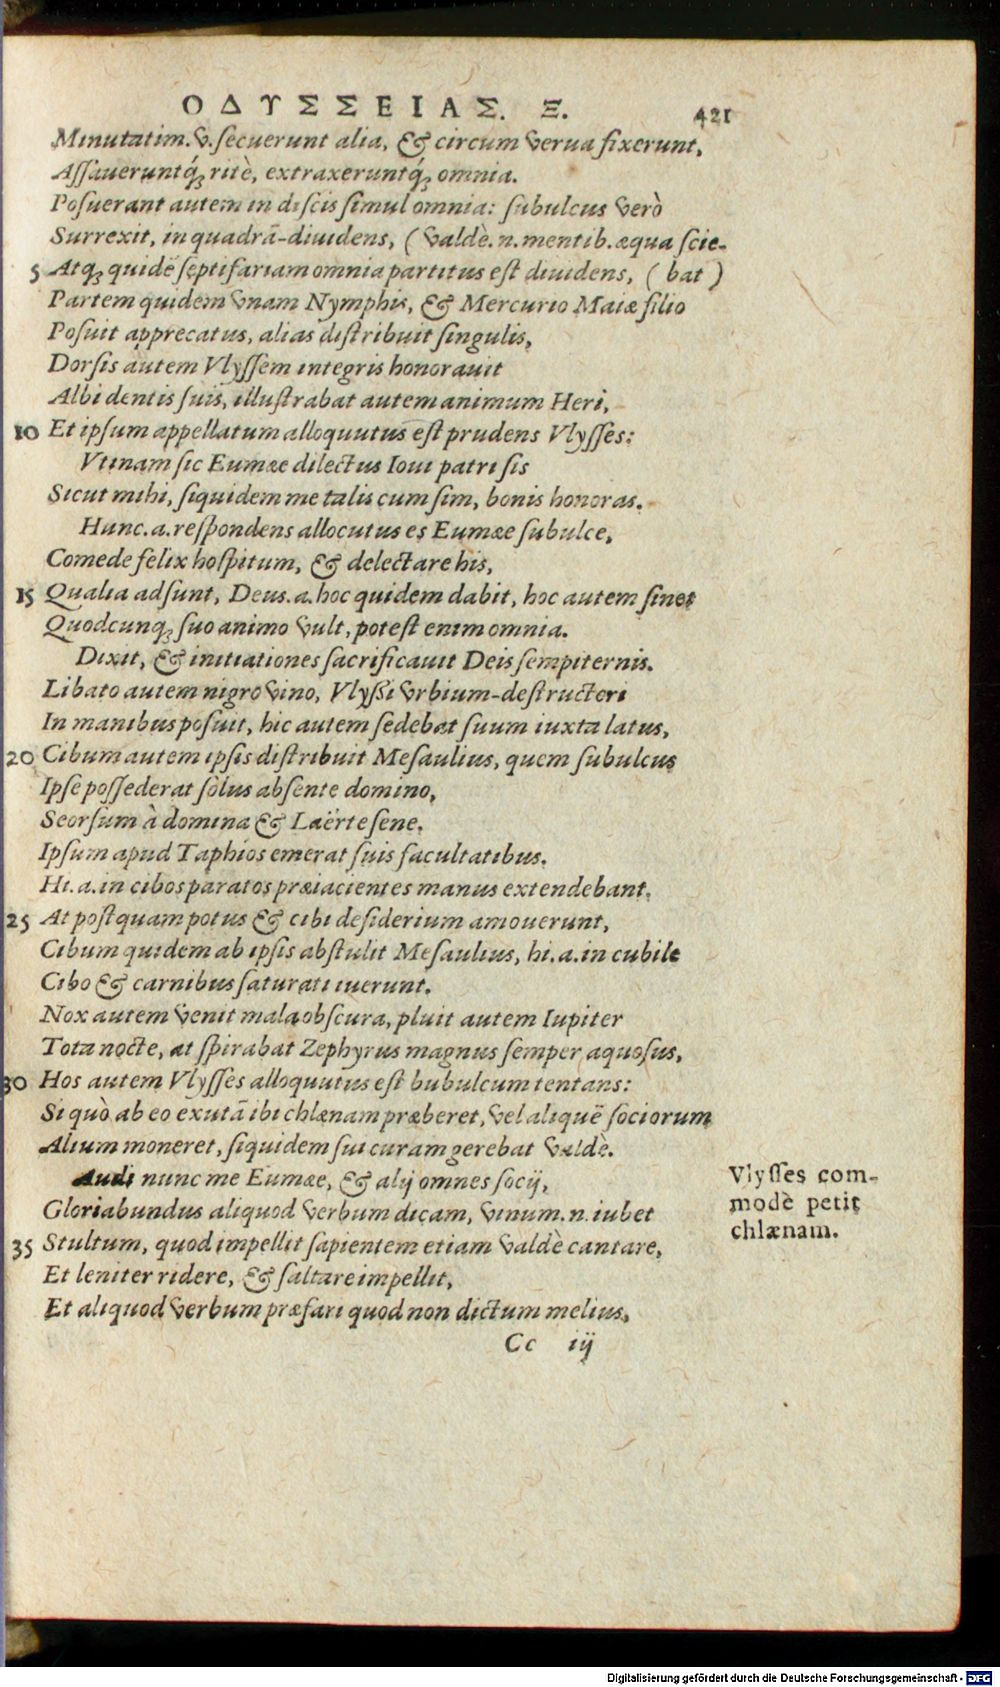 ΟΔΥΣΣΕΙΑΣ. Ξ. 421
Minutatim.v.secuerunt alia, & circum verua fixerunt,
Assaueruntq́; ritè, extraxeruntq́; omnia.
Posuerant autem in discis simul omnia: subulcus verò
Surrexit, in quadrā-diuidens, (valdè.n.mentib.æqua scie-
5 Atq; quidē septifariam omnia partitus est diuidens, (bat)
Partem quidem vnam Nymphis, & Mercurio Maiæ filio
Posuit apprecatus, alias distribuit singulis,
Dorsis autem Vlyssem integris honorauit
Albidentis suis, illustrabat autem animum Heri,
10 Et ipsum appellatum alloquutus est prudens Vlysses:
Vtinam sic Eumæe dilectus Ioui patri sis
Sicut mihi, siquidem me talis cum sim, bonis honoras.
Hunc.a.respondens allocutus es Eumæe subulce,
Comede felix hospitum, & delectare his,
15 Qualia adsunt, Deus.a.hoc quidem dabit, hoc autem sinet
Quodcunq; suo animo vult, potest enim omnia.
Dixit, & initiationes sacrificauit Deis sempiternis.
Libato autem nigro vino, Vlyssi vrbium-destructori
In manibus posuit, hic autem sedebat suum iuxta latus,
20 Cibum autem ipsis distribuit Mesaulius, quem subulcus
Ipse possederat sòlus absente domino,
Seorsùm à domina & Laërte sene.
Ipsum apud Taphios emerat suis facultatibus.
Hi.a.in cibos paratos præiacientes manus extendebant.
25 At postquam potus & cibi desiderium amouerunt,
Cibum quidem ab ipsis abstulit Mesaulius, hi.a.in cubile
Cibo & carnibus saturati iuerunt.
Nox autem venit mala obscura, pluit autem Iupiter
Tota nocte, at spirabat Zephyrus magnus semper aquosus,
30 Hos autem Vlysses alloquutus est bubulcum tentans:
Si quò ab eo exutā ibi chlænam præberet, vel aliquē sociorum
Alium moneret, siquidem sui curam gerebat valdè.
Audi nunc me Eumæe, & alij omnes socij,
Gloriabundus aliquod verbum dicam, vinum.n.iubet
35 Stultum, quod impellit sapientem etiam valdè cantare,
Et leniter ridere, & saltare impellit,
Et aliquod verbum præfari quod non dictum melius,
Cc iij
Vlysses com-
modè petit
chlænam.
Digitalisierung gefördert durch die Deutsche Forschungsgemeinschaft - DFG